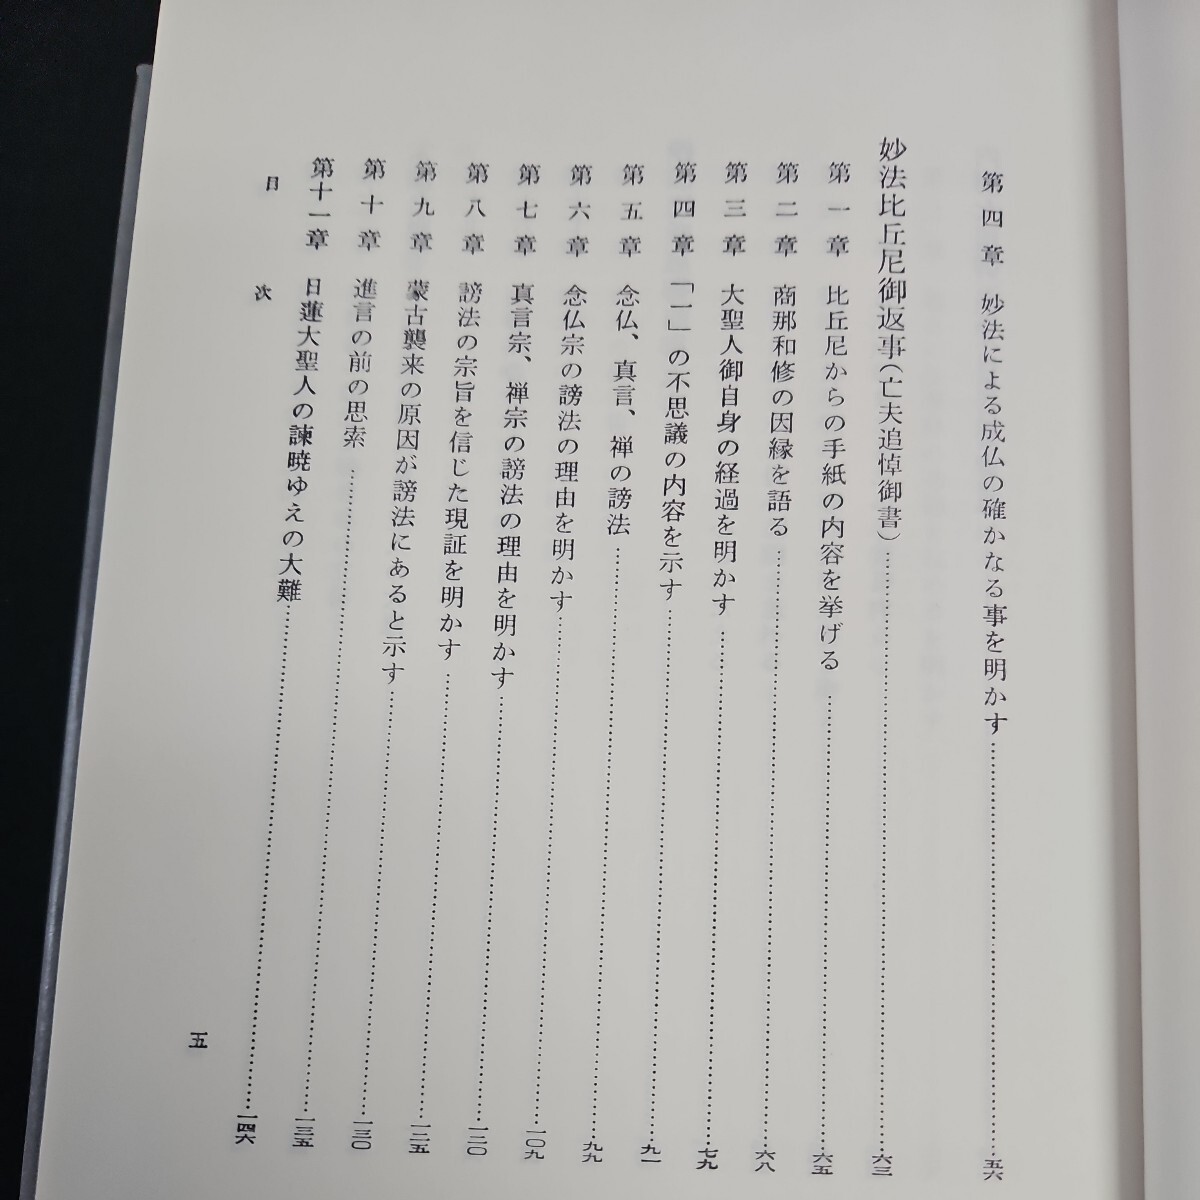 第四章　妙法による成仏の確かなる事を明かす……五六
妙法比丘尼御返事（亡夫追悼御書）……六三
第一章　比丘尼からの手紙の内容を挙げる……六五
第二章　商那和修の因縁を語る……六八
第三章　大聖人御自身の経過を明かす……七九
第四章　「一」の不思議の内容を示す……九一
第五章　念仏、真言、禅の謗法……九九
第六章　念仏宗の謗法の理由を明かす……一〇九
第七章　真言宗、禅宗の謗法の理由を明かす……一二〇
第八章　謗法の宗旨を信じた現証を明かす……一二五
第九章　蒙古襲来の原因が謗法にあると示す……一三〇
第十章　進言の前の思索……一三五
第十一章　日蓮大聖人の諫暁ゆえの大難……一四六
目次
五